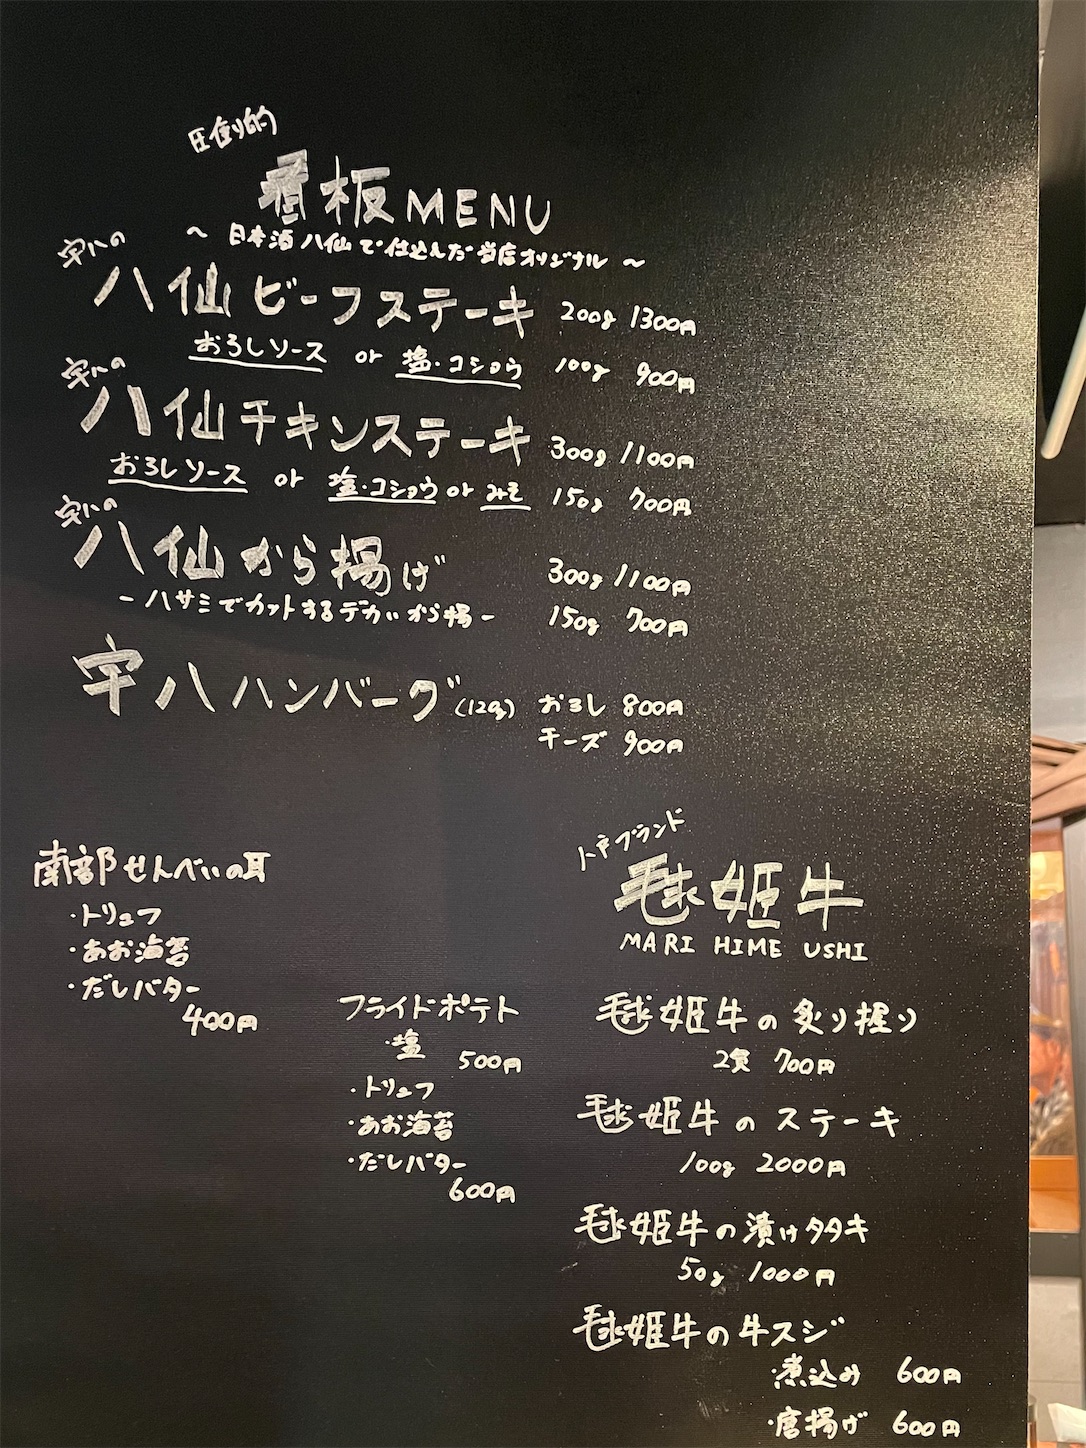 圧倒的
看板MENU
～日本酒八仙で仕込んだ当店オリジナル～
宇八の
八仙ビーフステーキ 200g 1300円
おろしソース or 塩・コショウ 100g 900円
宇八の
八仙チキンステーキ 300g 1100円
おろしソース or 塩・コショウ or みそ 150g 700円
宇八の
八仙から揚げ 300g 1100円
-ハサミでカットするデカいから揚- 150g 700円
宇八ハンバーグ(120g) おろし 800円
チーズ 900円
南部せんべいの耳
・トリュフ
・あお海苔
・だしバター
400円
フライドポテト
・塩
500円
・トリュフ
・あお海苔
・だしバター
600円
八戸ブランド
毬姫牛
MARI HIME USHI
毬姫牛の炙り握り
2貫 700円
毬姫牛のステーキ
100g 2000円
毬姫牛の漬けタタキ
50g 1000円
毬姫牛の牛スジ
・煮込み 600円
・唐揚げ 600円